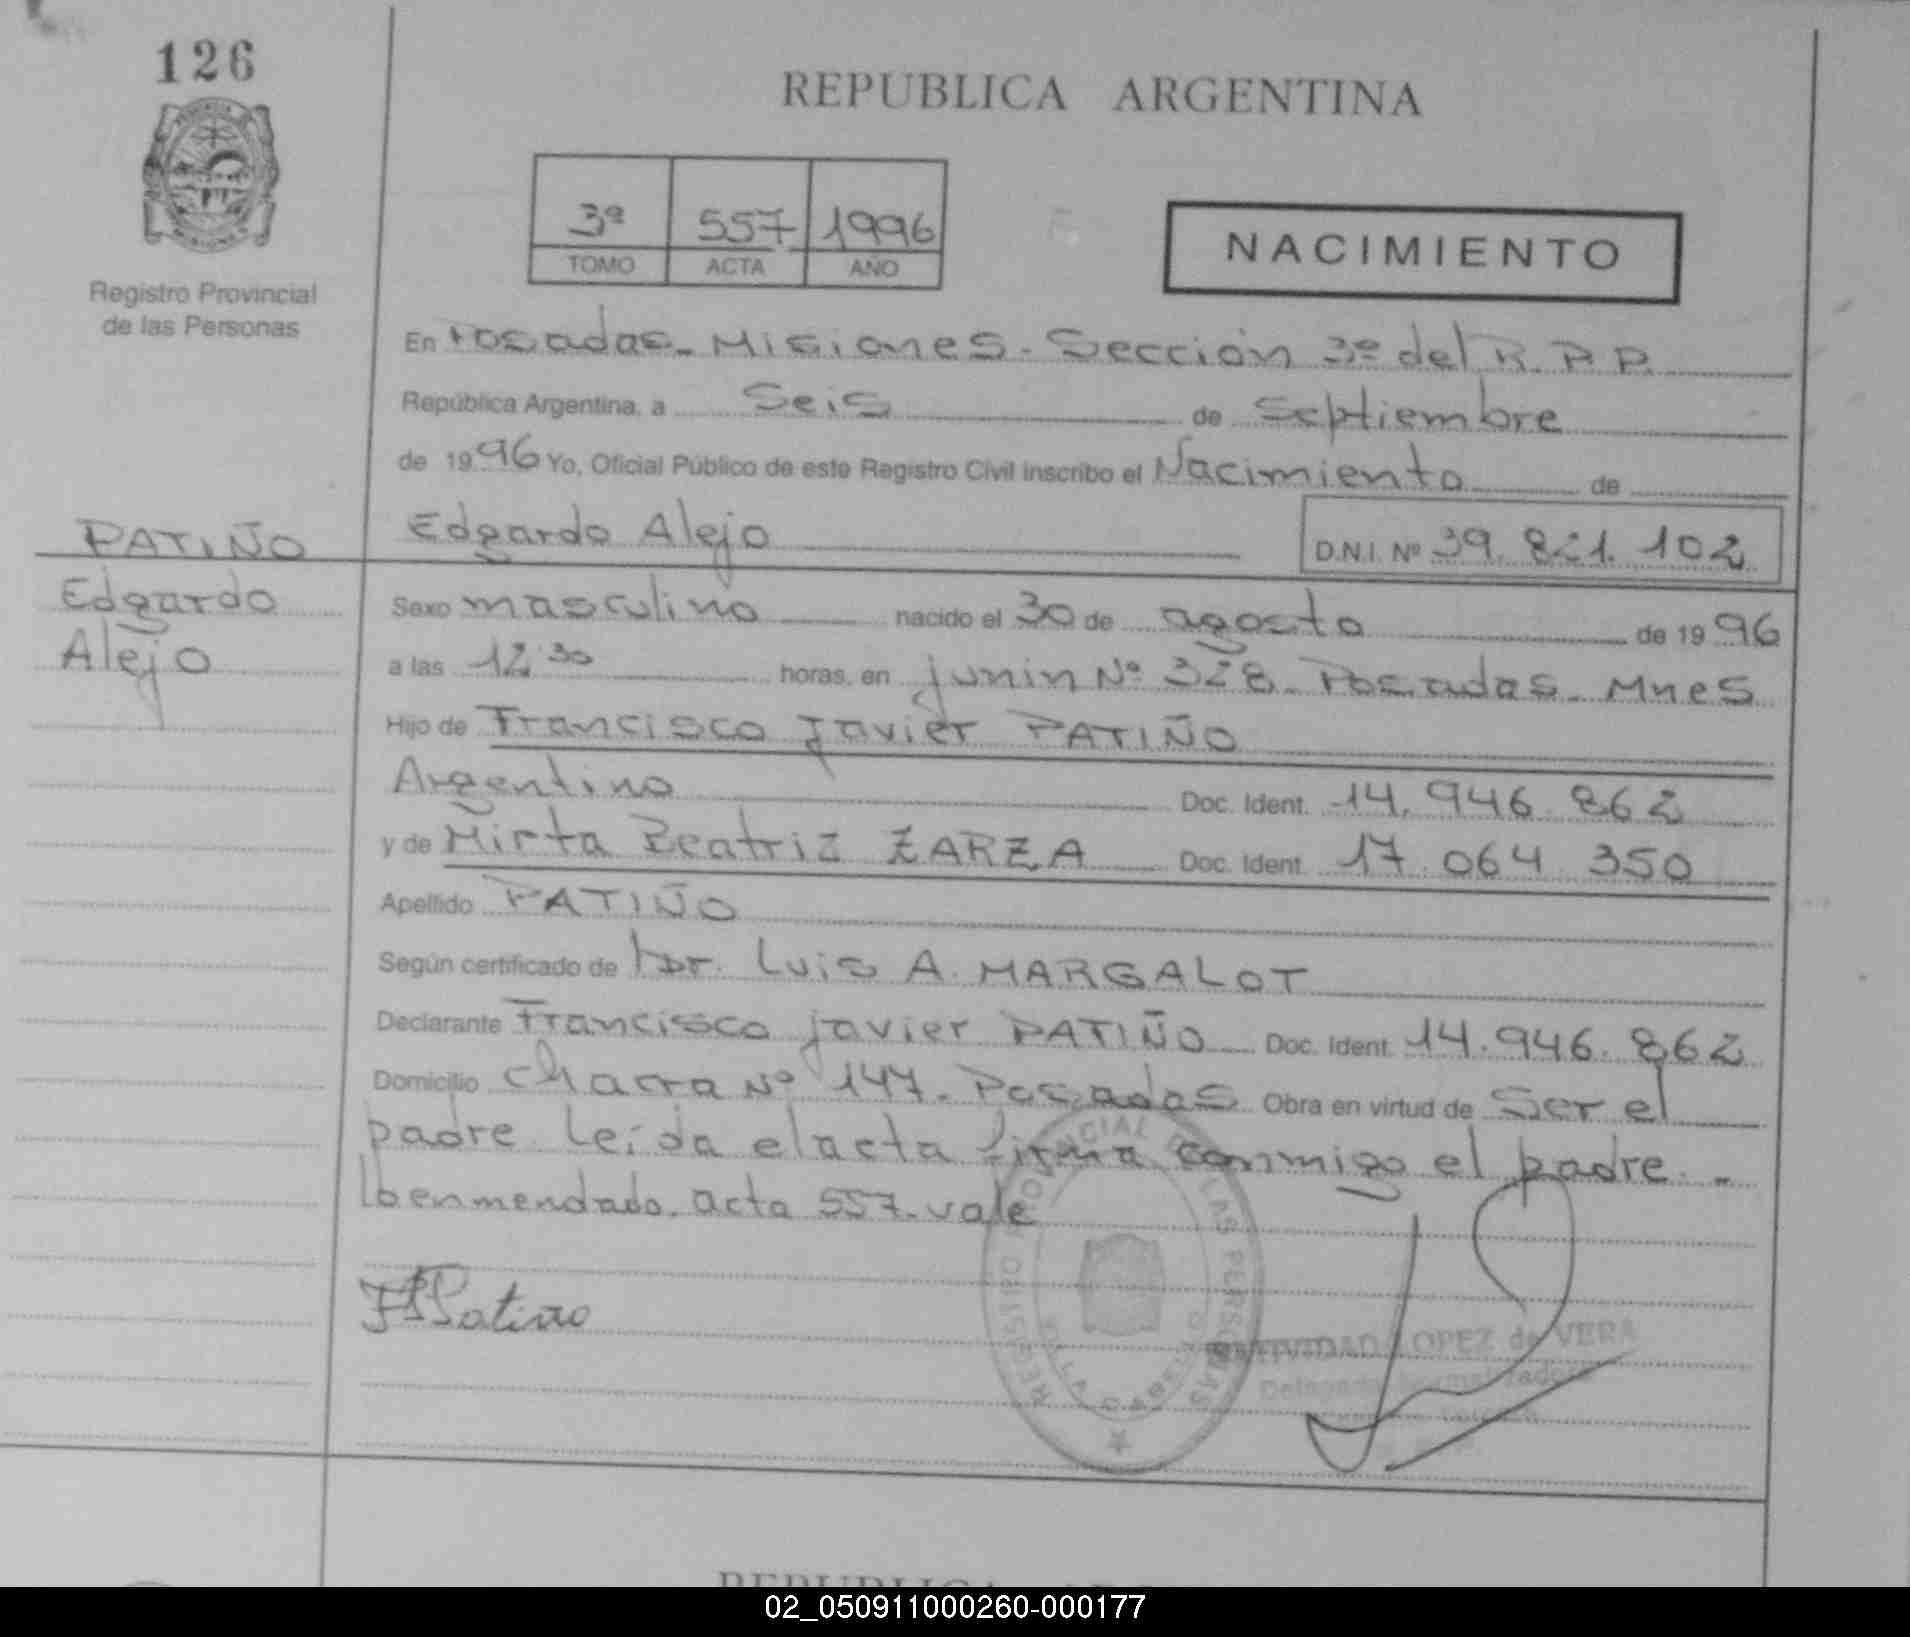 126
REPUBLICA ARGENTINA
3ª 557 1996
TOMO ACTA AÑO
NACIMIENTO
Registro Provincial
de las Personas
En Posadas - Misiones - Sección 3ª del R. P. P.
República Argentina, a Seis de Septiembre
de 1996 Yo, Oficial Público de este Registro Civil inscribo el Nacimiento de
PATIÑO
Edgardo
Alejo
Edgardo Alejo D.N.I. Nº 39.821.102
Sexo masculino nacido el 30 de agosto de 1996
a las 12 30 horas, en junin Nº 328 - Posadas - Mnes
Hijo de Francisco Javier PATIÑO
Argentino Doc. Ident. 14.946.862
y de Mirta Beatriz ZARZA Doc. Ident. 17.064.350
Apellido PATIÑO
Según certificado de Dr. Luis A. MARGALOT
Declarante Francisco javier PATIÑO Doc. Ident. 14.946.862
Domicilio chacra Nº 147 - Posadas Obra en virtud de Ser el
padre. Leída el acta firma conmigo el padre. -
lo enmendado. acta 557. vale
REGISTRO PROVINCIAL DE LAS PERSONAS
VILLA CABELLO
Patiño
NATIVIDAD LOPEZ de VERA
02_050911000260-000177